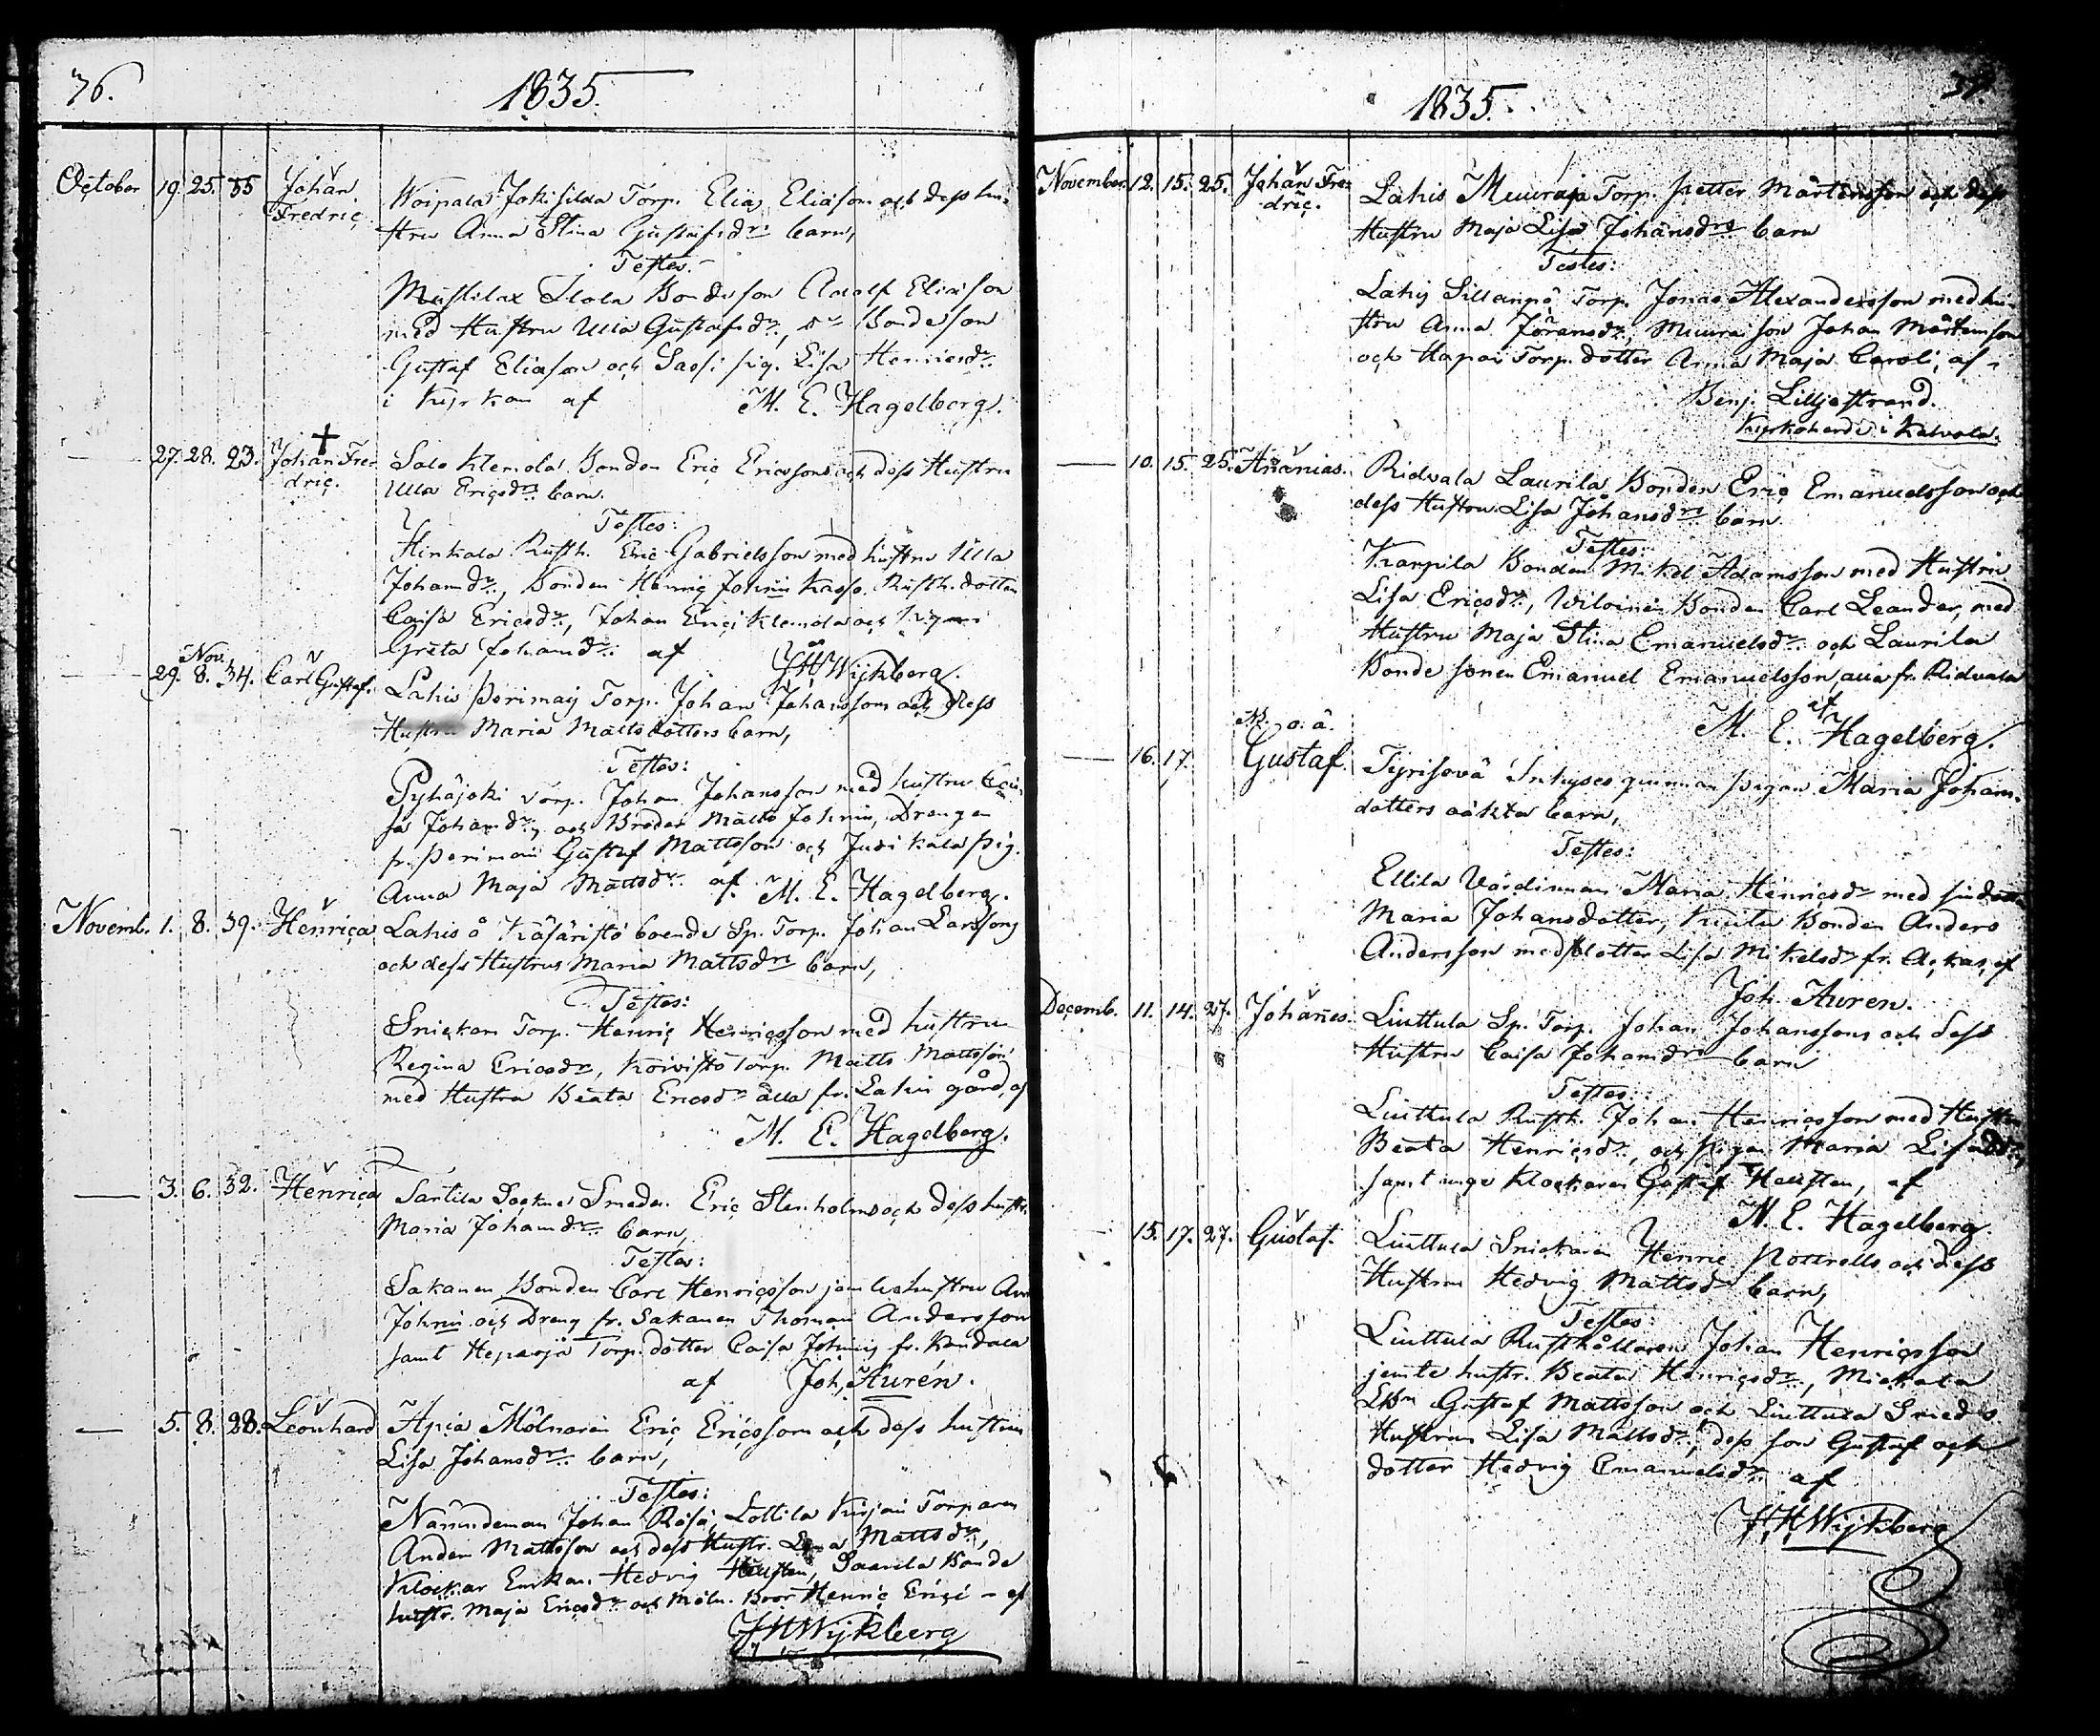 36.
1835.
October 19. 25. 35 Johan Fredric
Woipala Jokisilda Torp. Elias Eliasson och dess hu-
stru Anna Stina Gustafsdrs barn,
Testes:
Mustilax Ilola Bondeson Adolf Eliasson
med Hustru Ulla Gustafsdr, Bondeson
Gustaf Eliasson och Sassi pig. Lisa Henricsdr
i Kyrkan af M. E. Hagelberg.
27. 28. 23. Johan Fredric.
Salo Klemola Bonden Eric Ericssons och dess Hustru
Ulla Ericsdrs barn.
Testes:
Hinkala Rusth. Eric Gabrielsson med hustru Ulla
Johansdr, Bonden Henric Johnii Kasso. Rusth. dotter
Caisa Ericsdr, Johan Erici Klemola och
Greta Johansdr. af JHWijkberg.
29. Nov. 8. 34. Carl Gustaf.
Lahis Perimaij Torp. Johan Johanssons och dess
Hustru Maria Mattsdotters barn,
Testes:
Pyhäjoki Torp. Johan Johansson med hustru Cai-
sa Johansdr, och Broder Matts Johnii, Drengen
fr. Perimai Gustaf Mattsson och Jusikala pig.
Anna Maja Mattsdr. af M. E. Hagelberg.
Novemb. 1. 8. 39. Henrica
Lahis å Käsäristö boende Sp. Torp. Johan Larssons
och dess Hustrus Maria Mattsdrs barn,
Testes:
Snickar Torp. Henric Henricsson med hustru
Regina Ericsdr, Koivisto Torp. Matts Mattsson
med Hustru Beata Ericsdr alla fr. Lahis gård, af
M. E. Hagelberg.
3. 6. 32. Henrica
Santila Sockne Smeden Eric Stenholms och dess hustr.
Maria Johansdrs barn,
Testes:
Sakanen Bonden Carl Henricsson jemte hustru
Johnii och Dreng fr. Sakanen Thomas Andersson
samt Heparojä Torp. dotter Caisa Johnii fr. Kandala
af Joh. Aurén.
5. 8. 28. Leonhard
Apia Mölnaren Eric Ericsson och dess hustrus
Lisa Johansdrs barn,
Testes:
Nämndeman Johan Rosa, Lottila Torparen
Anders Mattsson och dess Hustr. Mattsdr,
Klockar Enkan Hedvig Hausten, Saarela Bonde
hustr. Maja Ericsdr och Möln. Bror Henric Erici - af
JHWijkberg
1835.
37.
November 12. 15. 25. Johan Fredric.
Lahis Muuraja Torp. Petter Mårtensson och dess
Hustru Maja Lisa Johansdrs barn
Testes:
Lahis Sillanpä Torp. Jonas Alexandersson med hu-
stru Anna Jöransdr, Muura son Johan Mårtensson
och Torp. dotter Anna Maja Caroli, af -
Benj. Liljestrand.
Kyrkoherde i Kalvola.
10. 15. 25. Ananias.
Ridvala Laurila Bonden Eric Emanuelsson och
dess Hustru Lisa Johansdrs barn
Testes:
Karpila Bonden Mikel Adamsson med Hustru
Lisa Ericsdr, Wiloinen Bonden Carl Leander, med
Hustru Maja Stina Emanuelsdr och Laurila
Bonde sonen Emanuel Emanuelsson, alla fr. Ridvala
af
M. E. Hagelberg.
16. 17. N. o. ä. Gustaf.
Tyrisevä Inhyses qvinnan Pigan Maria Johans-
dotters oäkta barn,
Testes:
Ellila Värdinnan Maria Henricsdr med sin dotter
Maria Johansdotter, Bonden Anders
Andersson med dotter Lisa Mikelsdr fr. Ackas, af
Joh. Auren.
Decemb. 11. 14. 27. Johannes.
Liuttula Sp. Torp. Johan Johanssons och dess
Hustru Caisa Johansdrs barn
Testes:
Liuttula Rusth. Johan Henricsson med Hustru
Beata Henricsdr, och pigan Maria
samt unge Klockaren Gustaf Hausten, af
M. E. Hagelberg.
15. 17. 27. Gustaf.
Liuttula Snickaren Henric Nottrells och dess
Hustrus Hedvig Mattsdr barn,
Testes:
Liuttula Rusthållaren Johan Henricsson
jemte hustr. Beata Henricsdr,
Gustaf Mattsson och Liuttula Smeds
Hustrun Lisa Mattsdr, dess son Gustaf och
dotter Hedvig Emanuelsdr. af
JHWijkberg